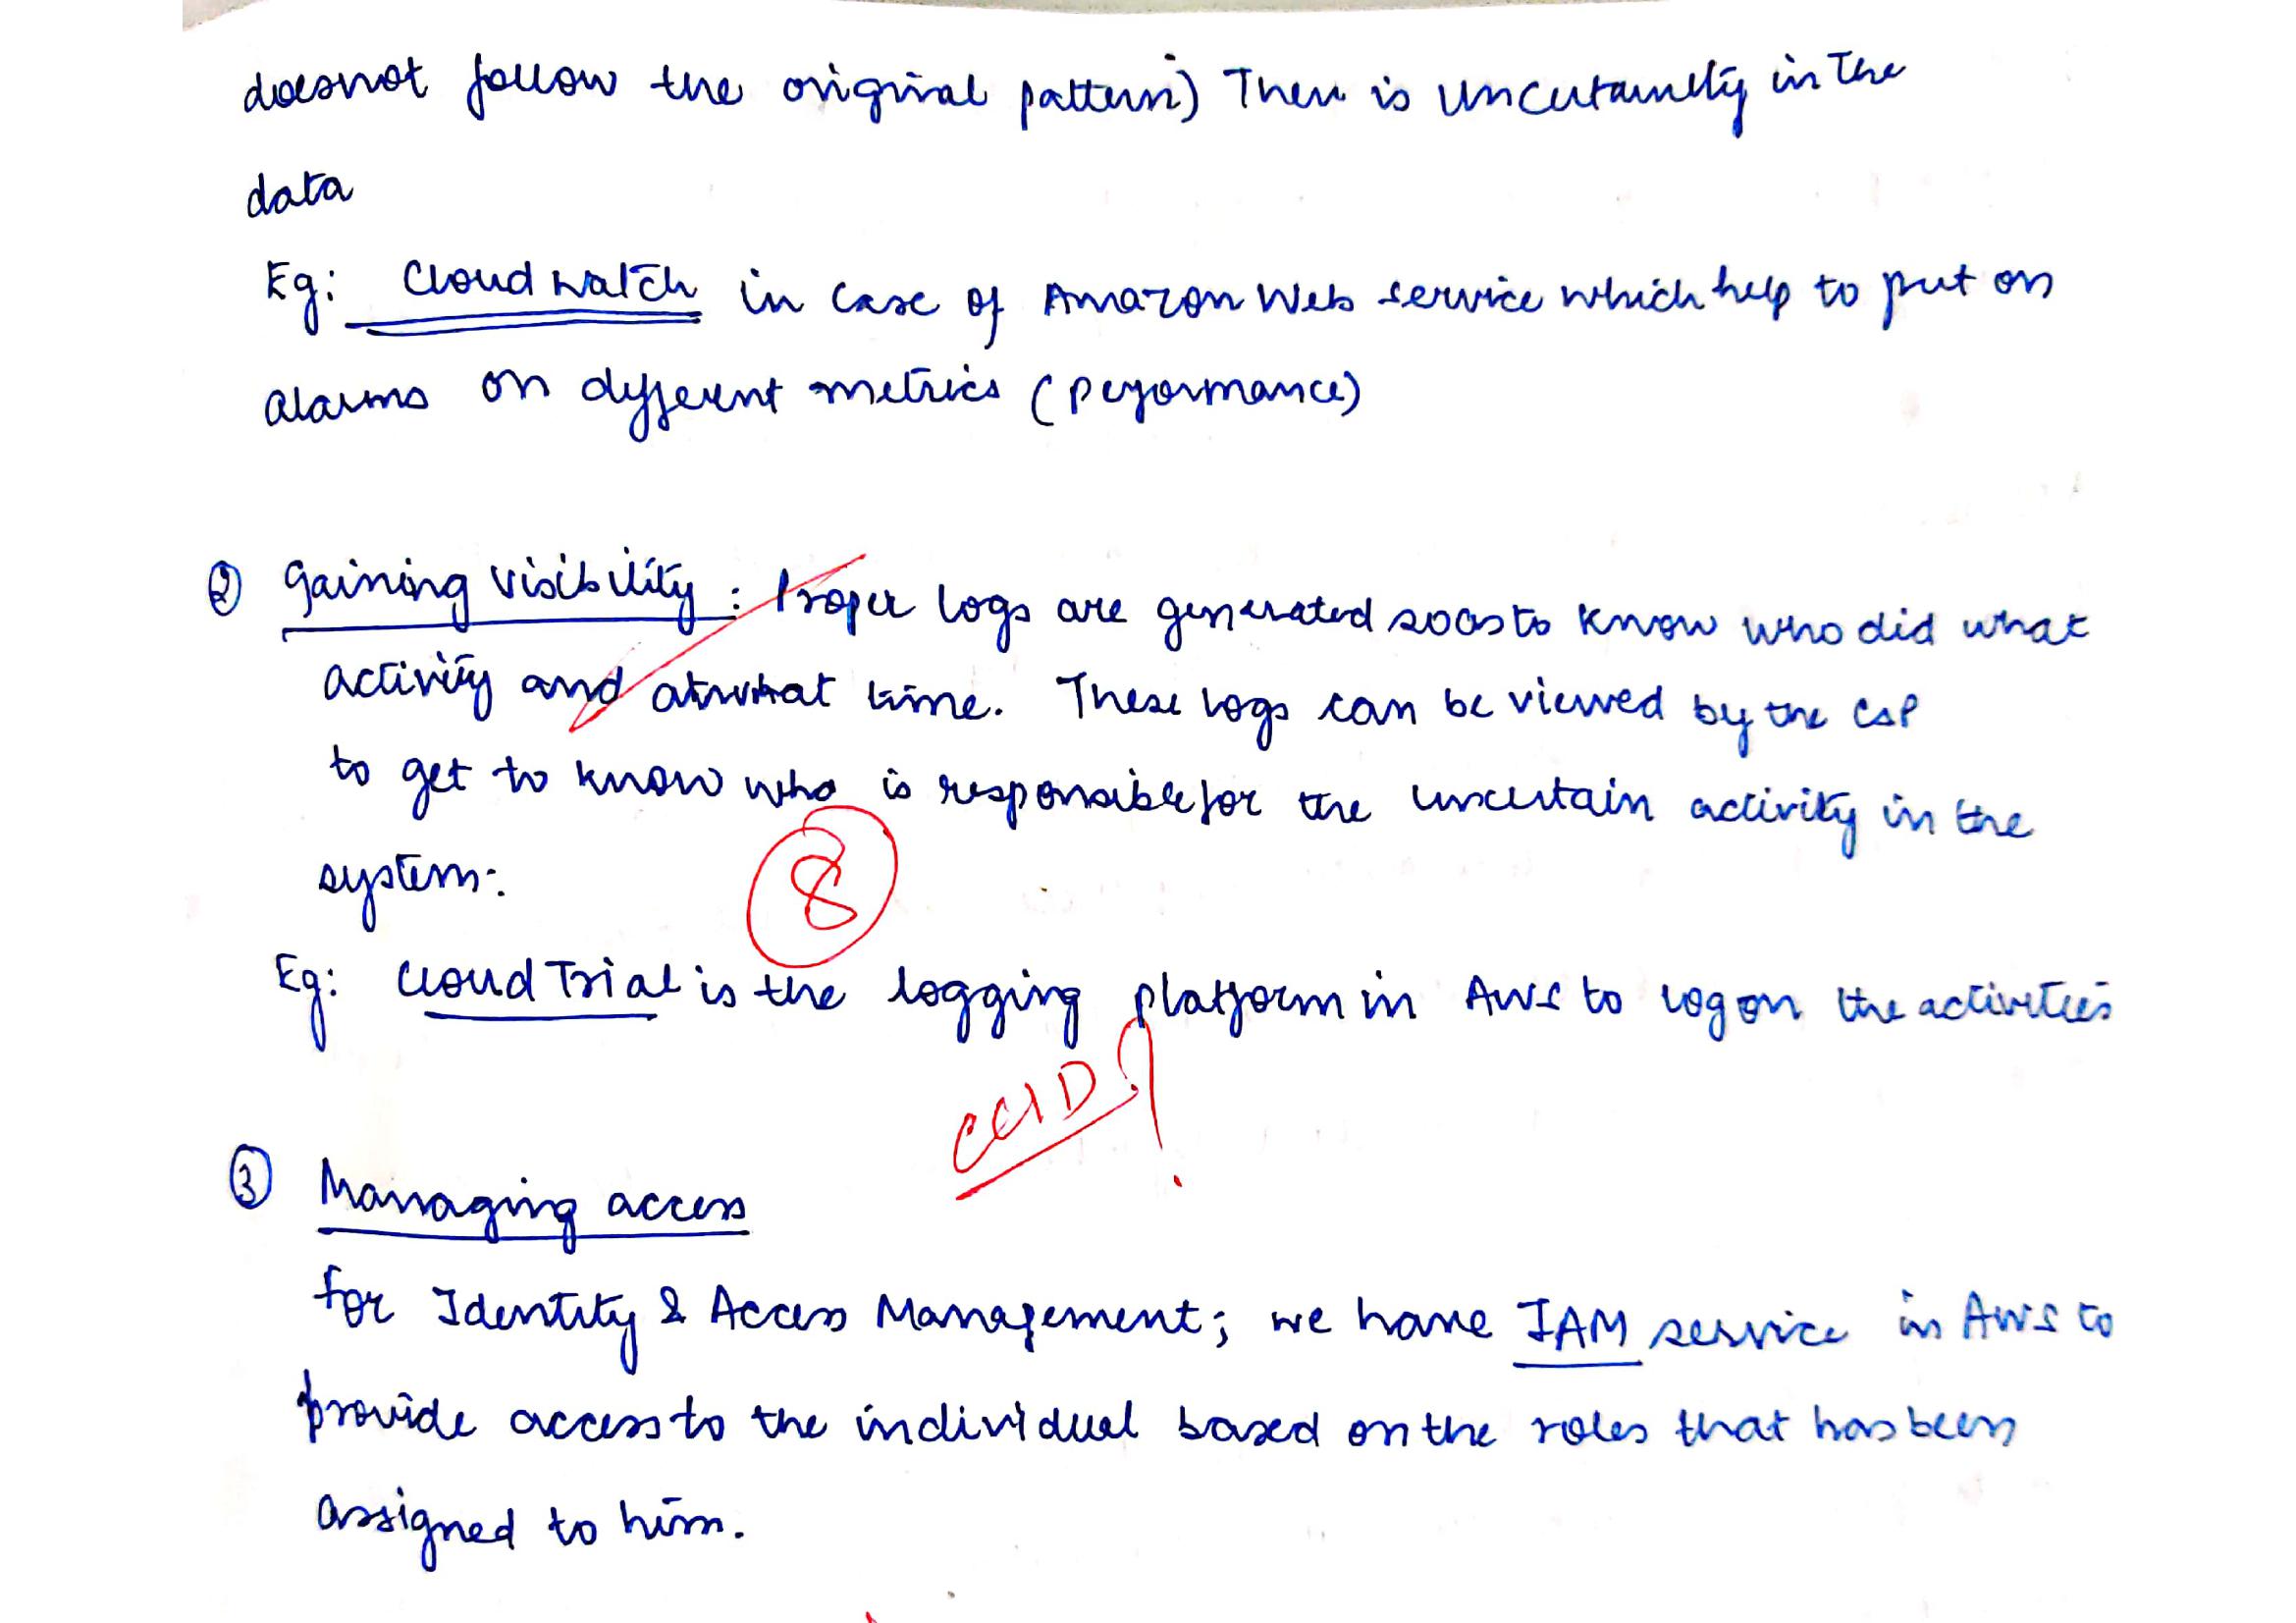 doesnot follow the original pattern) There is uncertainity in the
data
Eg: Cloud watch in case of Amazon Web service which help to put on
alarms on different metrics (performance)
② Gaining visibility : Proper logs are generated soasto know who did what
activity and atwhat time. These logs can be viewed by the CSP
to get to know who is responsible for the uncertain activity in the
system:
8
Eg: Cloud Trial is the logging platform in AWS to log on the activities
CCID ?
③ Managing access
for Identity & Access Management; we have IAM service in AWS to
provide access to the individual based on the roles that has been
assigned to him.